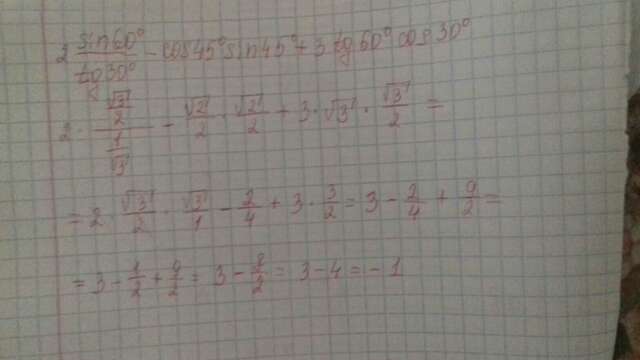 2 sin60°/tg30° - cos45°sin45° + 3 tg60° cos30°
2 · (√3/2)/(1/√3) - √2/2 · √2/2 + 3 · √3 · √3/2 =
= 2 · √3/2 · √3/1 - 2/4 + 3 · 3/2 = 3 - 2/4 + 9/2 =
= 3 - 1/2 + 9/2 = 3 - 8/2 = 3 - 4 = - 1